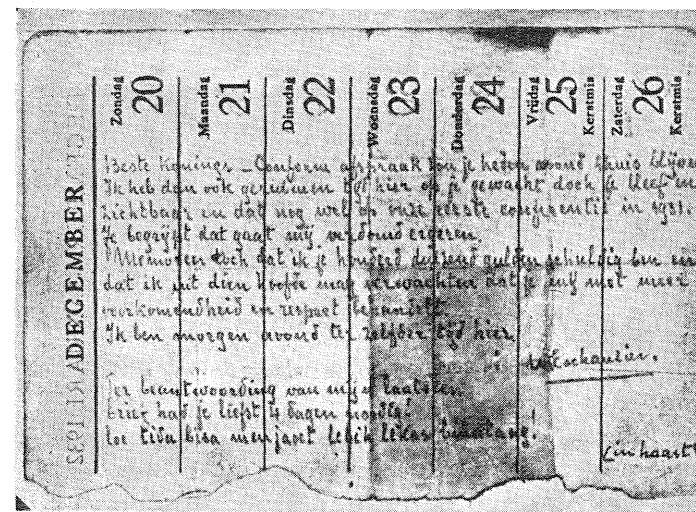 DECEMBER
Zondag 20
Maandag 21
Dinsdag 22
Woensdag 23
Donderdag 24
Vrijdag 25 Kerstmis
Zaterdag 26 Kerstmis
Beste Konings – Conform afspraak zou je heden avond thuis blijven
Ik heb dan ook geruimen tijd hier op je gewacht doch je bleef on
zichtbaar en dat nog wel op onze eerste conferentie in 1931.
Je begrijpt dat gaat mij verdomd ergeren.
Memoreer toch dat ik je honderd duizend gulden schuldig ben en
dat ik uit dien hoofde mag verwachten dat je mij met meer
voorkomendheid en respect behandelt.
Ik ben morgen avond ter zelfder tijd hier.
Ter beantwoording van mijn laatsten
brief had je liefst 4 dagen noodig.
loe tida bisa menjapet lebih lekas
(in haast